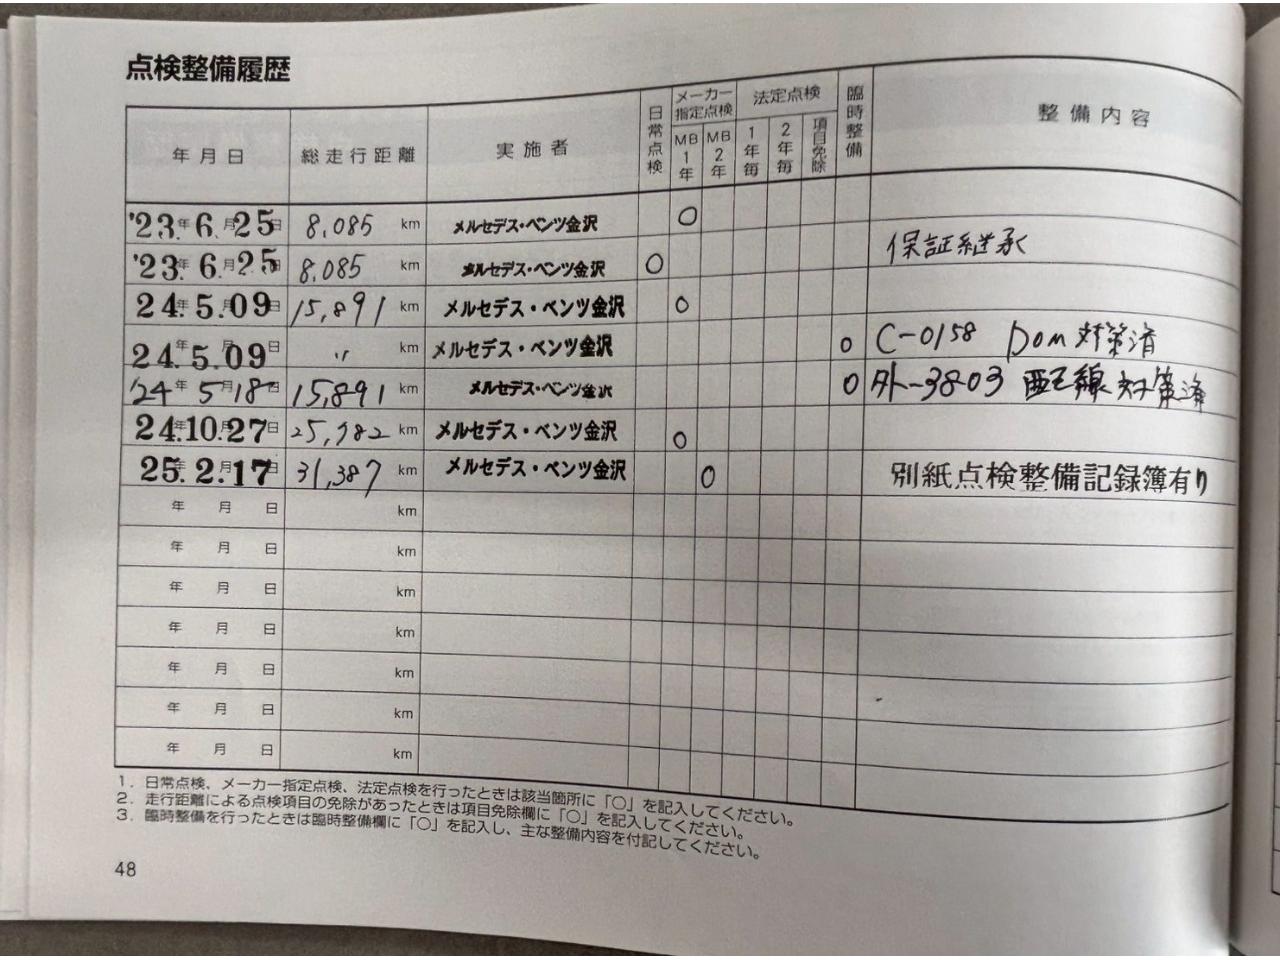 点検整備履歴
年月日 総走行距離 実施者 日常点検 メーカー指定点検 MB1年 MB2年 法定点検 1年毎 2年毎 項目免除 臨時整備 整備内容
'23年6月25日 8,085 km メルセデス・ベンツ金沢 ○
'23年6月25日 8,085 km メルセデス・ベンツ金沢 ○ 保証継承
24年5月09日 15,891 km メルセデス・ベンツ金沢 ○
24年5月09日 〃 km メルセデス・ベンツ金沢 ○ C-0158 Dom対策済
24年5月18日 15,891 km メルセデス・ベンツ金沢 ○ 外-3803 配線対策済
24年10月27日 km メルセデス・ベンツ金沢 ○
25年2月17日 31,387 km メルセデス・ベンツ金沢 ○ 別紙点検整備記録簿有り
年 月 日 km
年 月 日 km
年 月 日 km
年 月 日 km
年 月 日 km
年 月 日 km
年 月 日 km
1. 日常点検、メーカー指定点検、法定点検を行ったときは該当箇所に「○」を記入してください。
2. 走行距離による点検項目の免除があったときは項目免除欄に「○」を記入してください。
3. 臨時整備を行ったときは臨時整備欄に「○」を記入し、主な整備内容を付記してください。
48